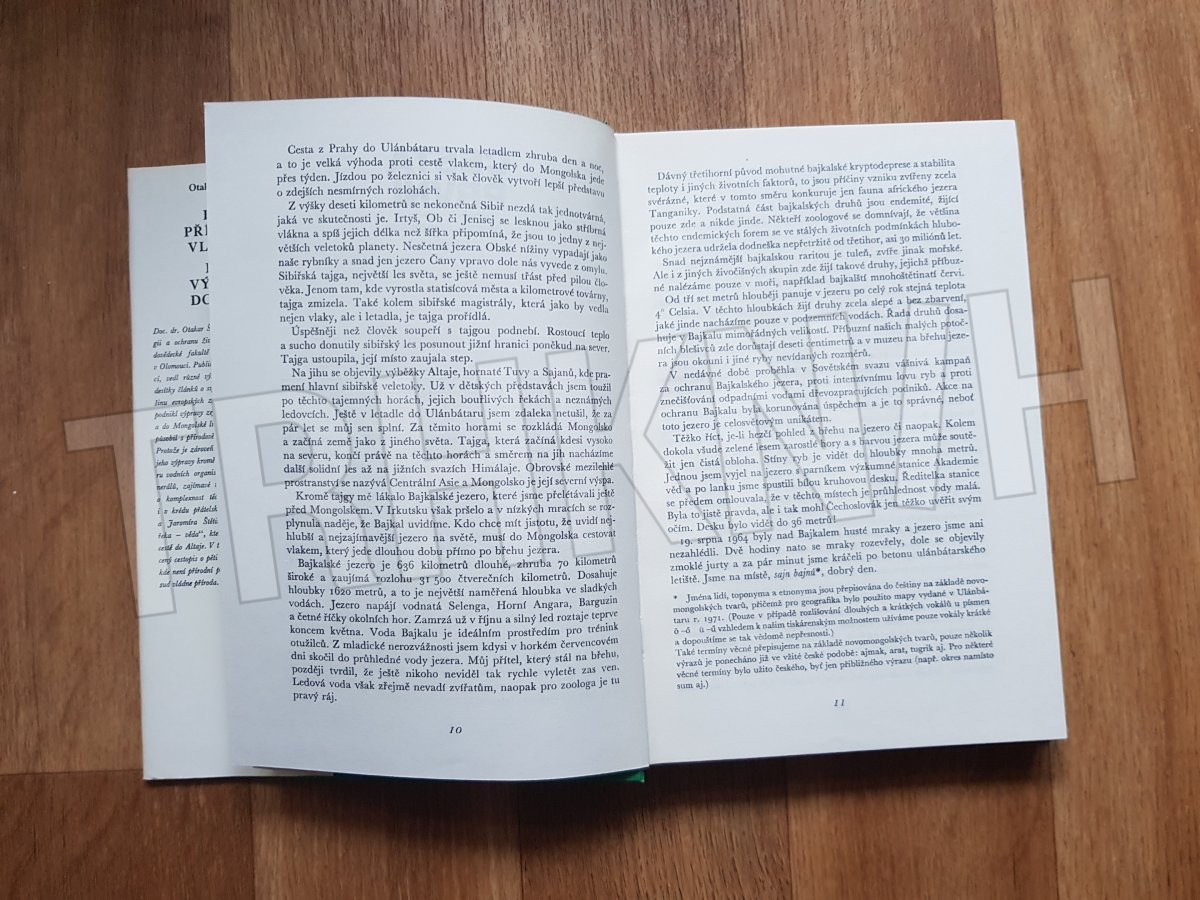 Otak
PŘÍ
VL
VÝ
DO
Doc. dr. Otakar Š
gii a ochranu živ
dovědecké fakultě
v Olomouci. Publi
cí, vedl různé vý
desítky článků o s
línu evropských ze
podnikl výpravy ze
a do Mongolské li
působil s přírodově
Protože je zároveň
jeho výpravy kromě
ru vodních organis
nerálů, zajímavé i
o komplexnost tě
i v krédu přátelsk
a Jaromíra Štětin
řeka – věda“, kte
cestě do Altaje. V t
cený cestopis o pěti
kde není přírodní p
sud vládne příroda.
Cesta z Prahy do Ulánbátaru trvala letadlem zhruba den a noc,
a to je velká výhoda proti cestě vlakem, který do Mongolska jede
přes týden. Jízdou po železnici si však člověk vytvoří lepší představu
o zdejších nesmírných rozlohách.
Z výšky deseti kilometrů se nekonečná Sibiř nezdá tak jednotvárná,
jaká ve skutečnosti je. Irtyš, Ob či Jenisej se lesknou jako stříbrná
vlákna a spíš jejich délka než šířka připomíná, že jsou to jedny z nej-
větších veletoků planety. Nesčetná jezera Obské nížiny vypadají jako
naše rybníky a snad jen jezero Čany vpravo dole nás vyvede z omylu.
Sibiřská tajga, největší les světa, se ještě nemusí třást před pilou člo-
věka. Jenom tam, kde vyrostla statisícová města a kilometrové továrny,
tajga zmizela. Také kolem sibiřské magistrály, která jako by vedla
nejen vlaky, ale i letadla, je tajga prořídlá.
Úspěšněji než člověk soupeří s tajgou podnebí. Rostoucí teplo
a sucho donutily sibiřský les posunout jižní hranici poněkud na sever.
Tajga ustoupila, její místo zaujala step.
Na jihu se objevily výběžky Altaje, hornaté Tuvy a Sajanů, kde pra-
mení hlavní sibiřské veletoky. Už v dětských představách jsem toužil
po těchto tajemných horách, jejich bouřlivých řekách a neznámých
ledovcích. Ještě v letadle do Ulánbátaru jsem zdaleka netušil, že za
pár let se můj sen splní. Za těmito horami se rozkládá Mongolsko
a začíná země jako z jiného světa. Tajga, která začíná kdesi vysoko
na severu, končí právě na těchto horách a směrem na jih nacházíme
další solidní les až na jižních svazích Himálaje. Obrovské mezilehlé
prostranství se nazývá Centrální Asie a Mongolsko je její severní výspa.
Kromě tajgy mě lákalo Bajkalské jezero, které jsme přelétávali ještě
před Mongolskem. V Irkutsku však pršelo a v nízkých mracích se roz-
plynula naděje, že Bajkal uvidíme. Kdo chce mít jistotu, že uvidí nej-
hlubší a nejzajímavější jezero na světě, musí do Mongolska cestovat
vlakem, který jede dlouhou dobu přímo po břehu jezera.
Bajkalské jezero je 636 kilometrů dlouhé, zhruba 70 kilometrů
široké a zaujímá rozlohu 31 500 čtverečních kilometrů. Dosahuje
hloubky 1620 metrů, a to je největší naměřená hloubka ve sladkých
vodách. Jezero napájí vodnatá Selenga, Horní Angara, Barguzin
a četné říčky okolních hor. Zamrzá už v říjnu a silný led roztaje teprve
koncem května. Voda Bajkalu je ideálním prostředím pro trénink
otužilců. Z mladické nerozvážnosti jsem kdysi v horkém červencovém
dni skočil do průhledné vody jezera. Můj přítel, který stál na břehu,
později tvrdil, že ještě nikoho neviděl tak rychle vyletět zas ven.
Ledová voda však zřejmě nevadí zvířatům, naopak pro zoologa je tu
pravý ráj.
10
Dávný třetihorní původ mohutné bajkalské kryptodeprese a stabilita
teploty i jiných životních faktorů, to jsou příčiny vzniku zvířeny zcela
svérázné, které v tomto směru konkuruje jen fauna afrického jezera
Tanganiky. Podstatná část bajkalských druhů jsou endemité, žijící
pouze zde a nikde jinde. Někteří zoologové se domnívají, že většina
těchto endemických forem se ve stálých životních podmínkách hlubo-
kého jezera udržela dodneška nepřetržitě od třetihor, asi 30 miliónů let.
Snad nejznámější bajkalskou raritou je tuleň, zvíře jinak mořské.
Ale i z jiných živočišných skupin zde žijí takové druhy, jejichž příbuz-
né nalézáme pouze v moři, například bajkalští mnohoštětinatí červi.
Od tří set metrů hlouběji panuje v jezeru po celý rok stejná teplota
4° Celsia. V těchto hloubkách žijí druhy zcela slepé a bez zbarvení,
jaké jinde nacházíme pouze v podzemních vodách. Řada druhů dosa-
huje v Bajkalu mimořádných velikostí. Příbuzní našich malých potoč-
ních blešivců zde dorůstají deseti centimetrů a v muzeu na břehu jeze-
ra jsou okouni i jiné ryby nevídaných rozměrů.
V nedávné době proběhla v Sovětském svazu vášnivá kampaň
za ochranu Bajkalského jezera, proti intenzívnímu lovu ryb a proti
znečišťování odpadními vodami dřevozpracujících podniků. Akce na
ochranu Bajkalu byla korunována úspěchem a je to správné, neboť
toto jezero je celosvětovým unikátem.
Těžko říct, je-li hezčí pohled z břehu na jezero či naopak. Kolem
dokola všude zelené lesem zarostlé hory a s barvou jezera může soutě-
žit jen čistá obloha. Stíny ryb je vidět do hloubky mnoha metrů.
Jednou jsem vyjel na jezero s parníkem výzkumné stanice Akademie
věd a po lanku jsme spustili bílou kruhovou desku. Ředitelka stanice
se předem omlouvala, že v těchto místech je průhlednost vody malá.
Byla to jistě pravda, ale i tak mohl Čechoslovák jen těžko uvěřit svým
očím. Desku bylo vidět do 36 metrů!
19. srpna 1964 byly nad Bajkalem husté mraky a jezero jsme ani
nezahlédli. Dvě hodiny nato se mraky rozevřely, dole se objevily
zmoklé jurty a za pár minut jsme kráčeli po betonu ulánbátarského
letiště. Jsme na místě, sajn bajnú*, dobrý den.
* Jména lidí, toponyma a etnonyma jsou přepisována do češtiny na základě novo-
mongolských tvarů, přičemž pro geografika bylo použito mapy vydané v Ulánbá-
taru r. 1971. (Pouze v případě rozlišování dlouhých a krátkých vokálů u písmen
ö –ő ü –ű vzhledem k našim tiskárenským možnostem užíváme pouze vokály krátké
a dopouštíme se tak vědomě nepřesnosti.)
Také termíny věcné přepisujeme na základě novomongolských tvarů, pouze několik
výrazů je ponecháno již ve vžité české podobě: ajmak, arat, tugrik aj. Pro některé
věcné termíny bylo užito českého, byť jen přibližného výrazu (např. okres namísto
sum aj.)
11